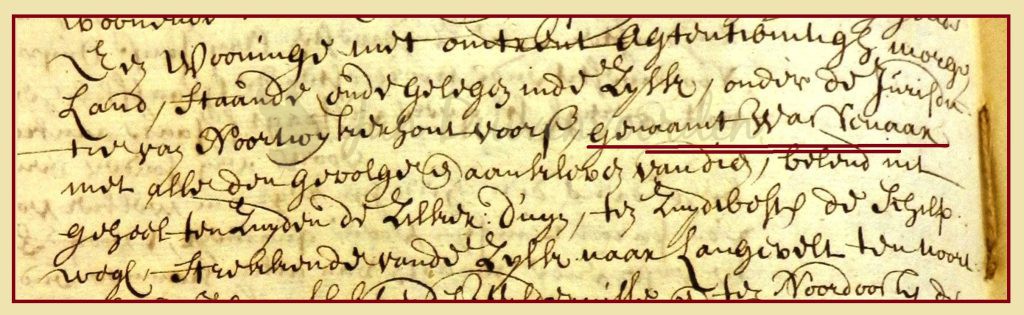 Een Wooninge met omtrent Agtentwintigh morge
Land, staande ende gelegen inde Zylk, onder de Jurisdic
tie van Noortwykerhout voors, genaamt Was Senaar
met alle den gevolge en aankleven vandien, belend int
geheel ten Zuyden de Zilker duyn, ten Zuydoosten de Schulp
wegh, strekkende vande Zylk naar Langevelt ten noort
Noordoosten de